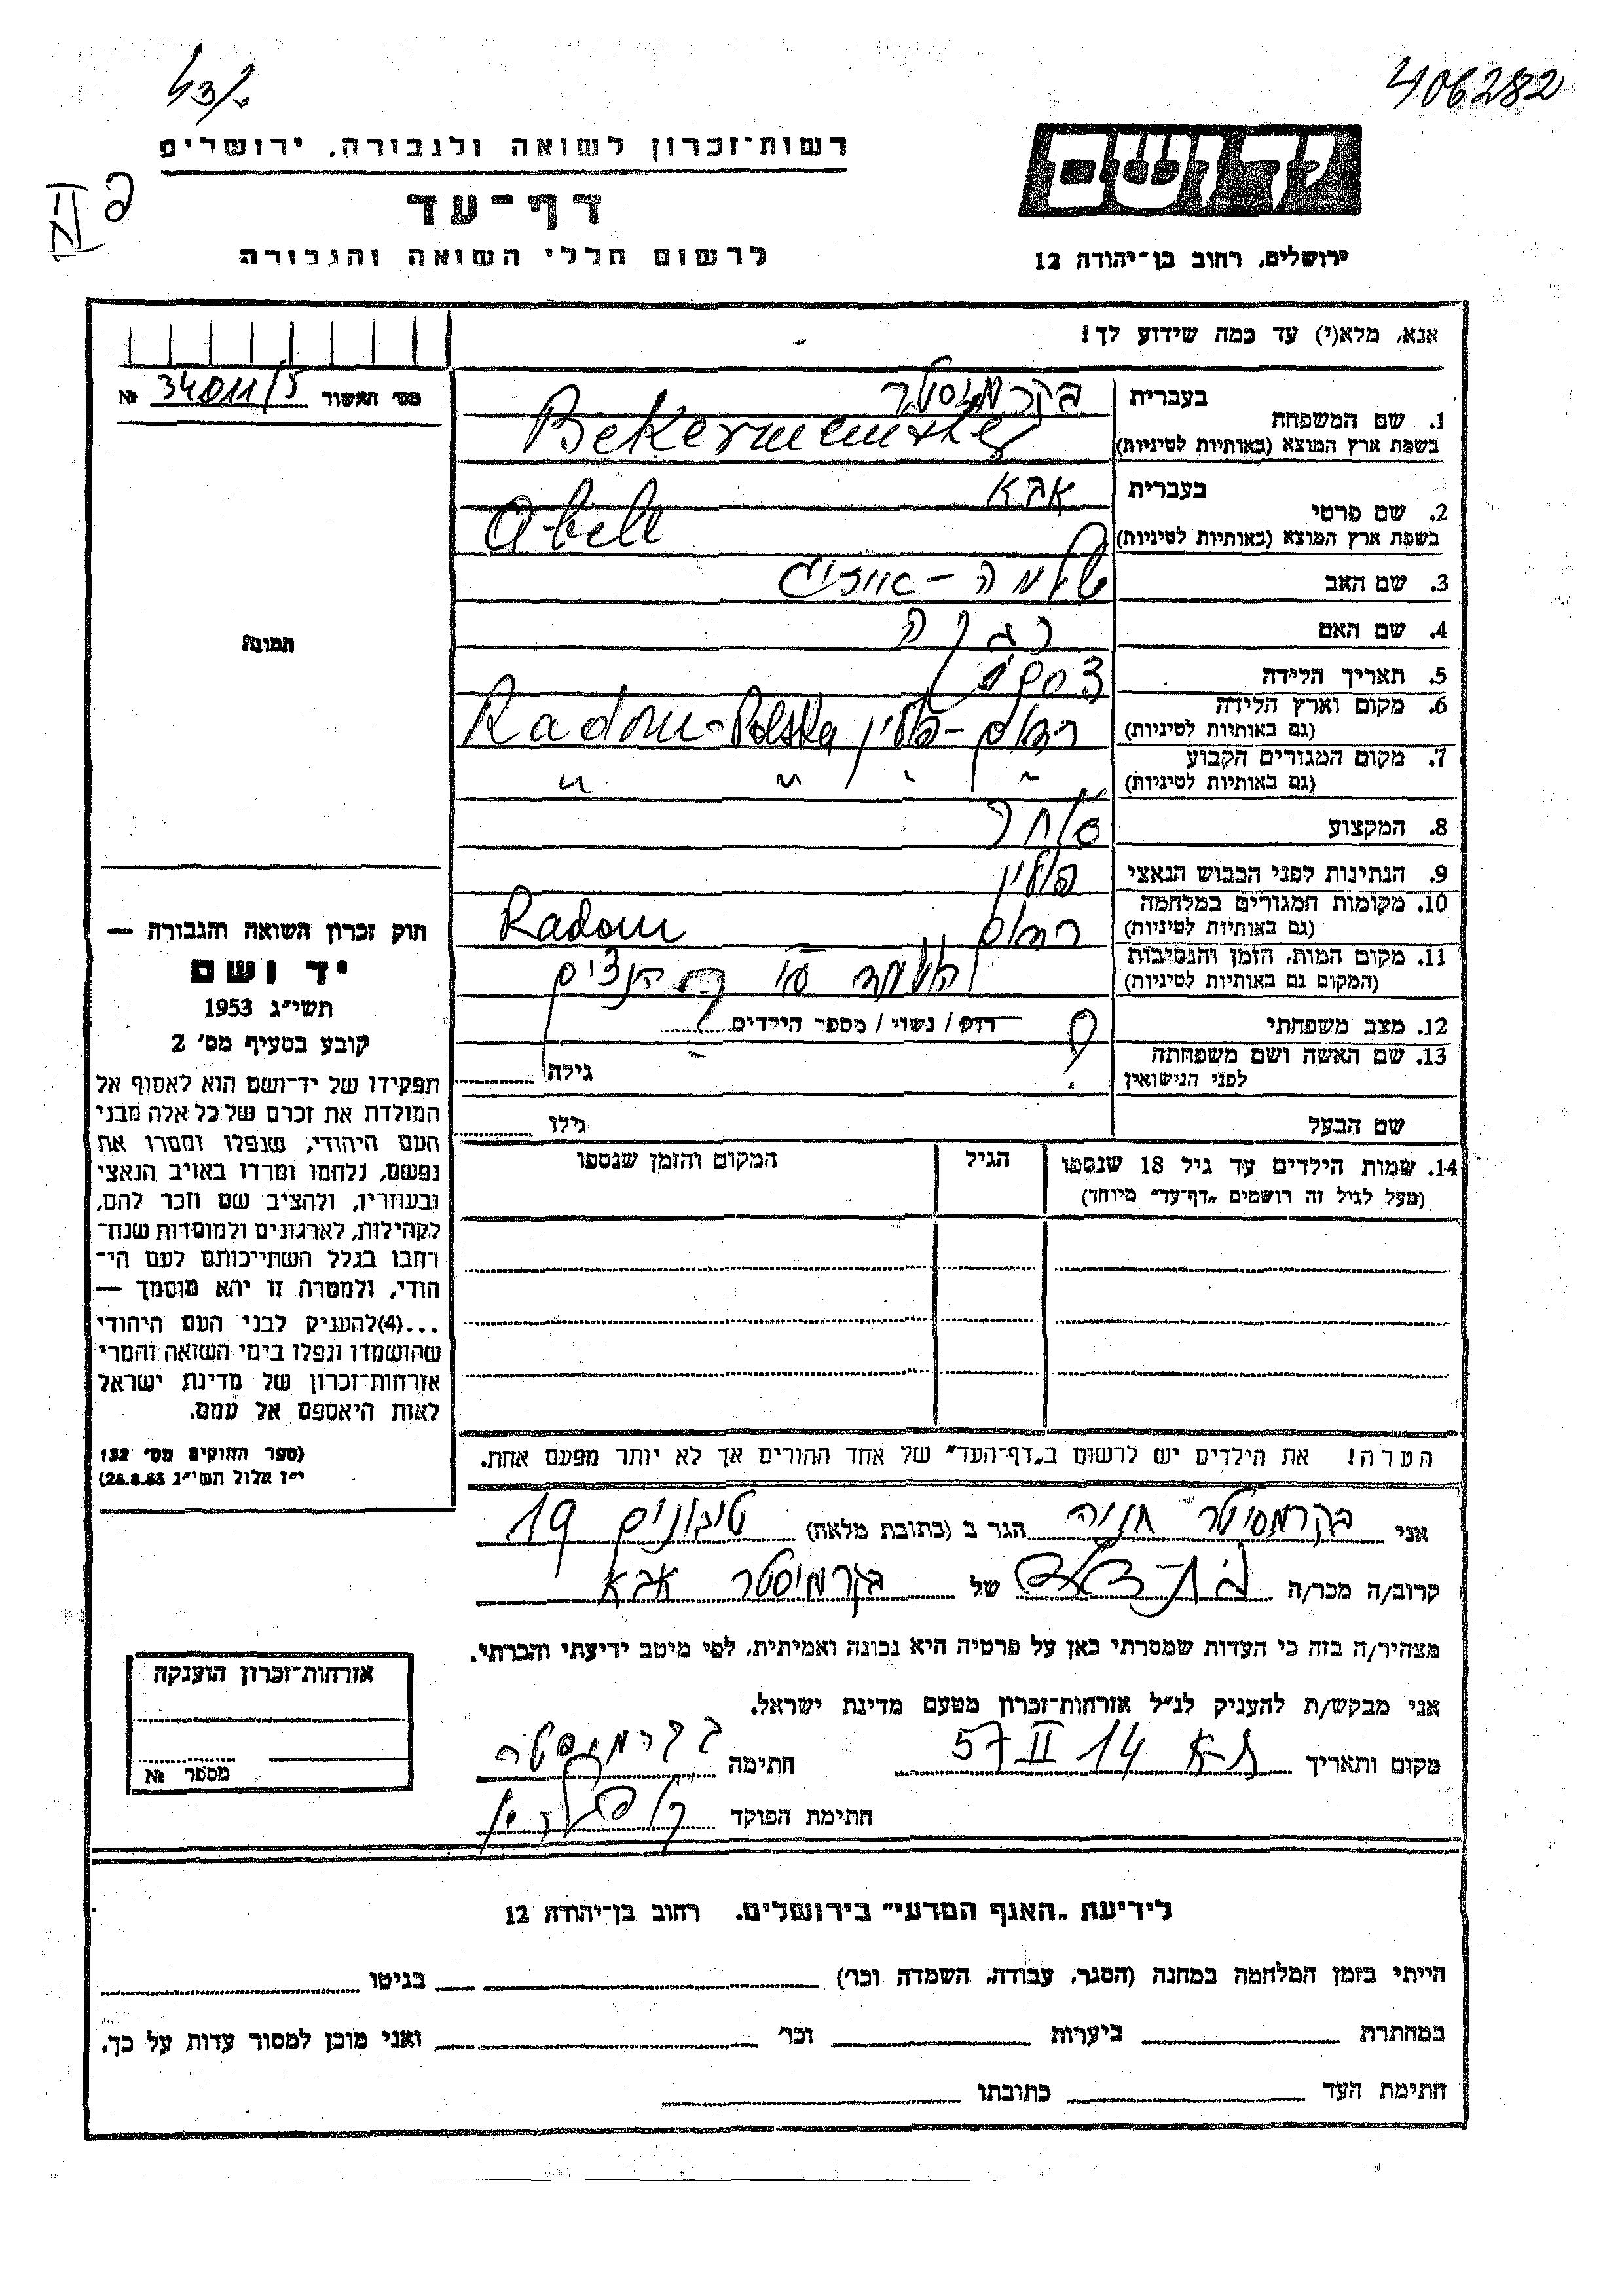 43/
406282
רשות־זכרון לשואה ולגבורה, ירושלים
דף־עד
לרשום חללי השואה והגבורה
יד ושם
ירושלים, רחוב בן־יהודה 12
אנא, מלא(י) עד כמה שידוע לך!
מס׳ האשור 34011/5 №
תמונה
1. שם המשפחה
בעברית בקרמיסטר
בשפת ארץ המוצא (באותיות לטיניות) Bekermeister
2. שם פרטי
בעברית אבא
בשפת ארץ המוצא (באותיות לטיניות) Abell
3. שם האב שלמה
4. שם האם רבקה
5. תאריך הלידה
6. מקום וארץ הלידה
(גם באותיות לטיניות) רדום - פולין Radom - Polska
7. מקום המגורים הקבוע
(גם באותיות לטיניות) " " " "
8. המקצוע סוחר
9. הנתינות לפני הכבוש הנאצי פולין
10. מקומות המגורים במלחמה
(גם באותיות לטיניות) רדום Radom
11. מקום המות, הזמן והנסיבות
(המקום גם באותיות לטיניות) הושמד הנצים
12. מצב משפחתי ? רוק / נשוי / מספר הילדים
13. שם האשה ושם משפחתה
לפני הנישואין גילה
שם הבעל גילו
14. שמות הילדים עד גיל 18 שנספו הגיל המקום והזמן שנספו
(מעל לגיל זה רושמים „דף־עד” מיוחד)
הערה! את הילדים יש לרשום ב„דף־העד” של אחד ההורים אך לא יותר מפעם אחת.
חוק זכרון השואה והגבורה —
יד ושם
תשי״ג 1953
קובע בסעיף מס׳ 2
תפקידו של יד־ושם הוא לאסוף אל
המולדת את זכרם של כל אלה מבני
העם היהודי, שנפלו ומסרו את
נפשם, נלחמו ומרדו באויב הנאצי
ובעוזריו, ולהציב שם וזכר להם,
לקהילות, לארגונים ולמוסדות שנח־
רחבו בגלל השתייכותם לעם הי־
הודי, ולמטרה זו יהא מוסמך —
...(4)להעניק לבני העם היהודי
שהושמדו ונפלו בימי השואה והמרי
אזרחות־זכרון של מדינת ישראל
לאות היאספם אל עמם.
(ספר החוקים מס׳ 132
י״ז אלול תשי״ג 28.8.53)
אני בקרמיסטר חניה הגר ב (כתובת מלאה) 19
קרוב/ה מכר/ה בת-דוד של בקרמיסטר אבא
מצהיר/ה בזה כי העדות שמסרתי כאן על פרטיה היא נכונה ואמיתית, לפי מיטב ידיעתי והכרתי.
אני מבקש/ת להעניק לנ״ל אזרחות־זכרון מטעם מדינת ישראל.
מקום ותאריך ת-א 14 II 57 חתימה בקרמיסטר
חתימת הפוקד
אזרחות־זכרון הוענקה
מספר №
לידיעת „האגף המדעי” בירושלים, רחוב בן־יהודה 12
הייתי בזמן המלחמה במחנה (הסגר, עבודה, השמדה וכו׳) בגיטו
במחתרת ביערות וכו׳ ואני מוכן למסור עדות על כך.
חתימת העד כתובתו